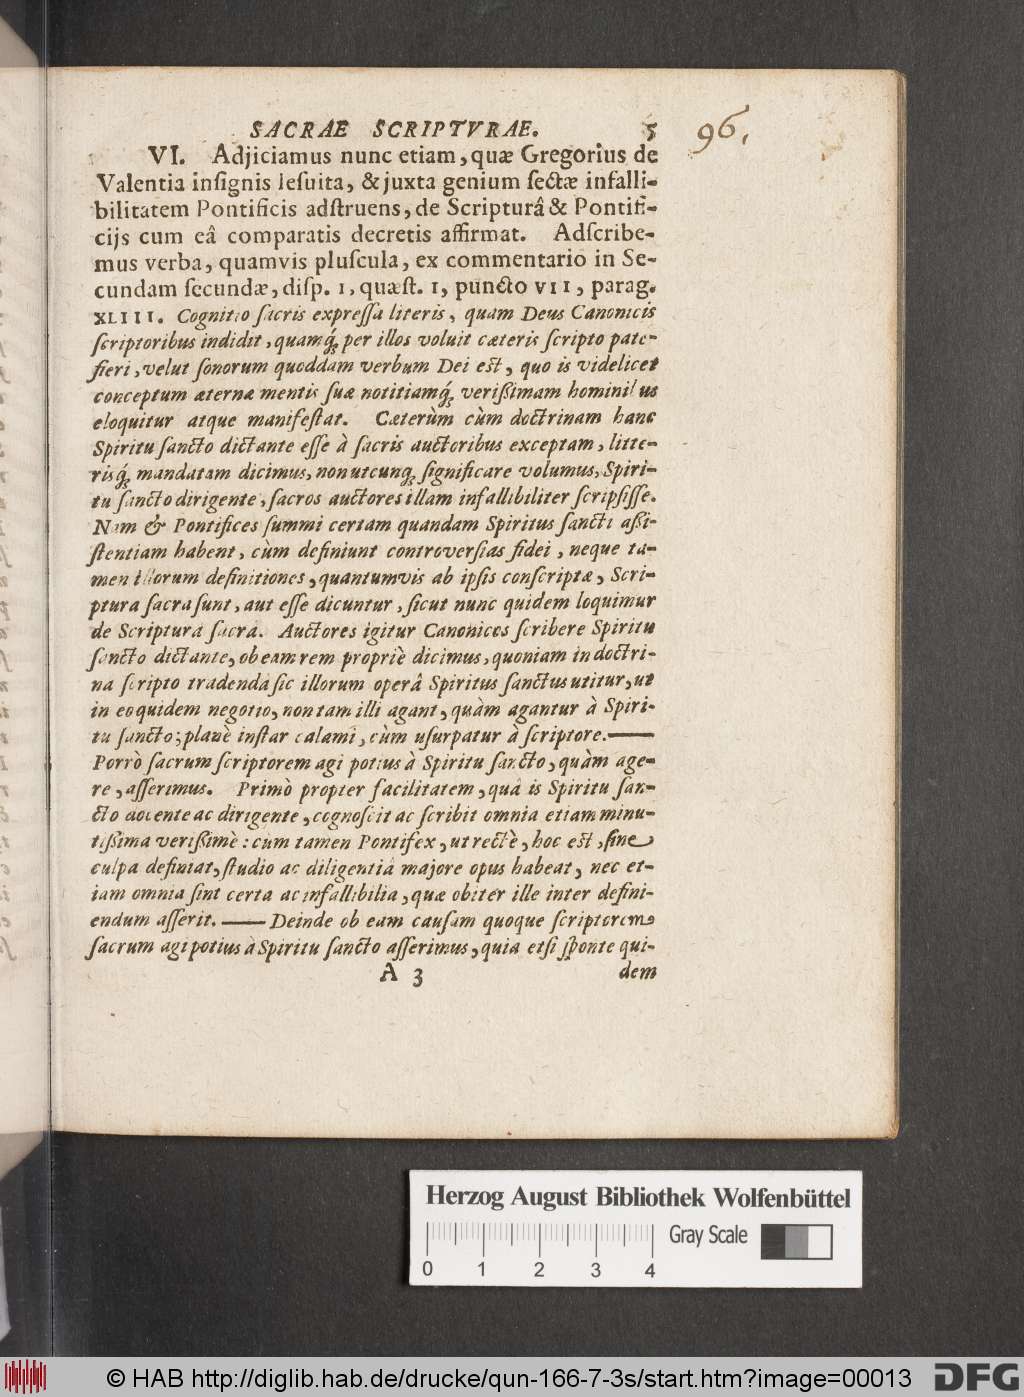 SACRAE SCRIPTVRAE. 5
96.
VI. Adjiciamus nunc etiam, quæ Gregorius de
Valentia inſignis Ieſuita, & juxta genium ſectæ infalli-
bilitatem Pontificis adſtruens, de Scripturâ & Pontifi-
cijs cum eâ comparatis decretis affirmat. Adſcribe-
mus verba, quamvis pluſcula, ex commentario in Se-
cundam ſecundæ, diſp. 1, quæſt. 1, puncto VII, parag.
XLIII. Cognitio ſacris expreſſa literis, quam Deus Canonicis
ſcriptoribus indidit, quamq́; per illos voluit cæteris ſcripto pate-
fieri, velut ſonorum quoddam verbum Dei eſt, quo is videlicet
conceptum æternæ mentis ſuæ notitiamq́; verißimam hominibus
eloquitur atque manifeſtat. Cæterùm cùm doctrinam hanc
Spiritu ſancto dictante eſſe à ſacris auctoribus exceptam, litte-
risq́; mandatam dicimus, non utcunq; ſignificare volumus, Spiri-
tu ſancto dirigente, ſacros auctores illam infallibiliter ſcripſiſſe.
Nam & Pontifices ſummi certam quandam Spiritus ſancti aßi-
ſtentiam habent, cùm definiunt controverſias fidei, neque ta-
men illorum definitiones, quantumvis ab ipſis conſcriptæ, Scri-
ptura ſacra ſunt, aut eſſe dicuntur, ſicut nunc quidem loquimur
de Scripturâ ſacrâ. Auctores igitur Canonicos ſcribere Spiritu
ſancto dictante, ob eam rem propriè dicimus, quoniam in doctri-
na ſcripto tradendâ ſic illorum operâ Spiritus ſanctus utitur, ut
in eo quidem negotio, non tam illi agant, quàm agantur à Spiri-
tu ſancto; planè inſtar calami, cùm uſurpatur à ſcriptore.——
Porrò ſacrum ſcriptorem agi potius à Spiritu ſancto, quàm age-
re, aſſerimus. Primò propter facilitatem, quâ is Spiritu ſan-
cto docente ac dirigente, cognoſcit ac ſcribit omnia etiam minu-
tißima verißimè: cum tamen Pontifex, ut rectè, hoc eſt, ſine
culpa definiat, ſtudio ac diligentiâ majore opus habeat, nec et-
iam omnia ſint certa ac infallibilia, quæ obiter ille inter defini-
endum aſſerit. —— Deinde ob eam cauſam quoque ſcriptorem
ſacrum agi potius à Spiritu ſancto aſſerimus, quia etſi ſponte qui-
A 3 dem
Herzog August Bibliothek Wolfenbüttel
Gray Scale
0 1 2 3 4
© HAB http://diglib.hab.de/drucke/qun-166-7-3s/start.htm?image=00013
DFG